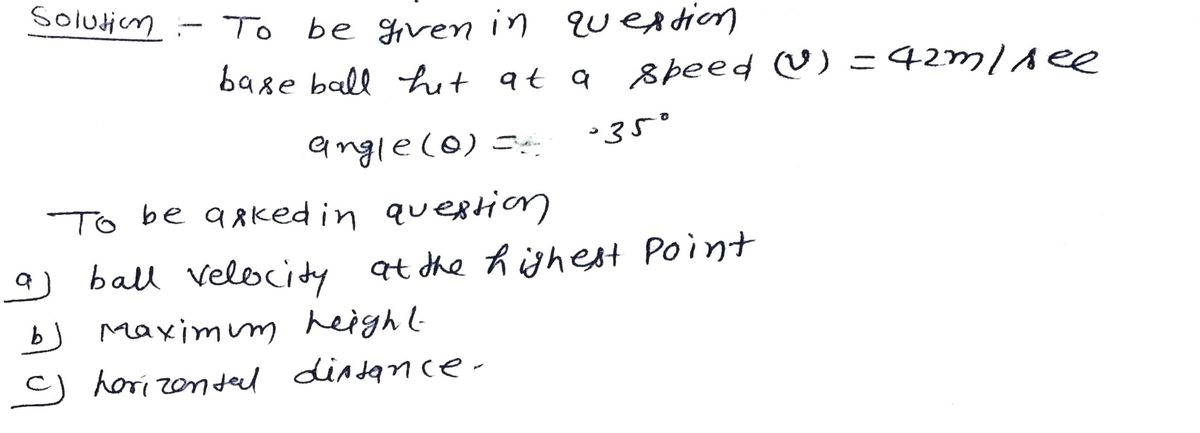 Solution :- To be given in question
base ball hit at a speed (v) = 42m/sec
angle (θ) = 35°
To be asked in question
a) ball velocity at the highest Point
b) Maximum height
c) horizontal distance.